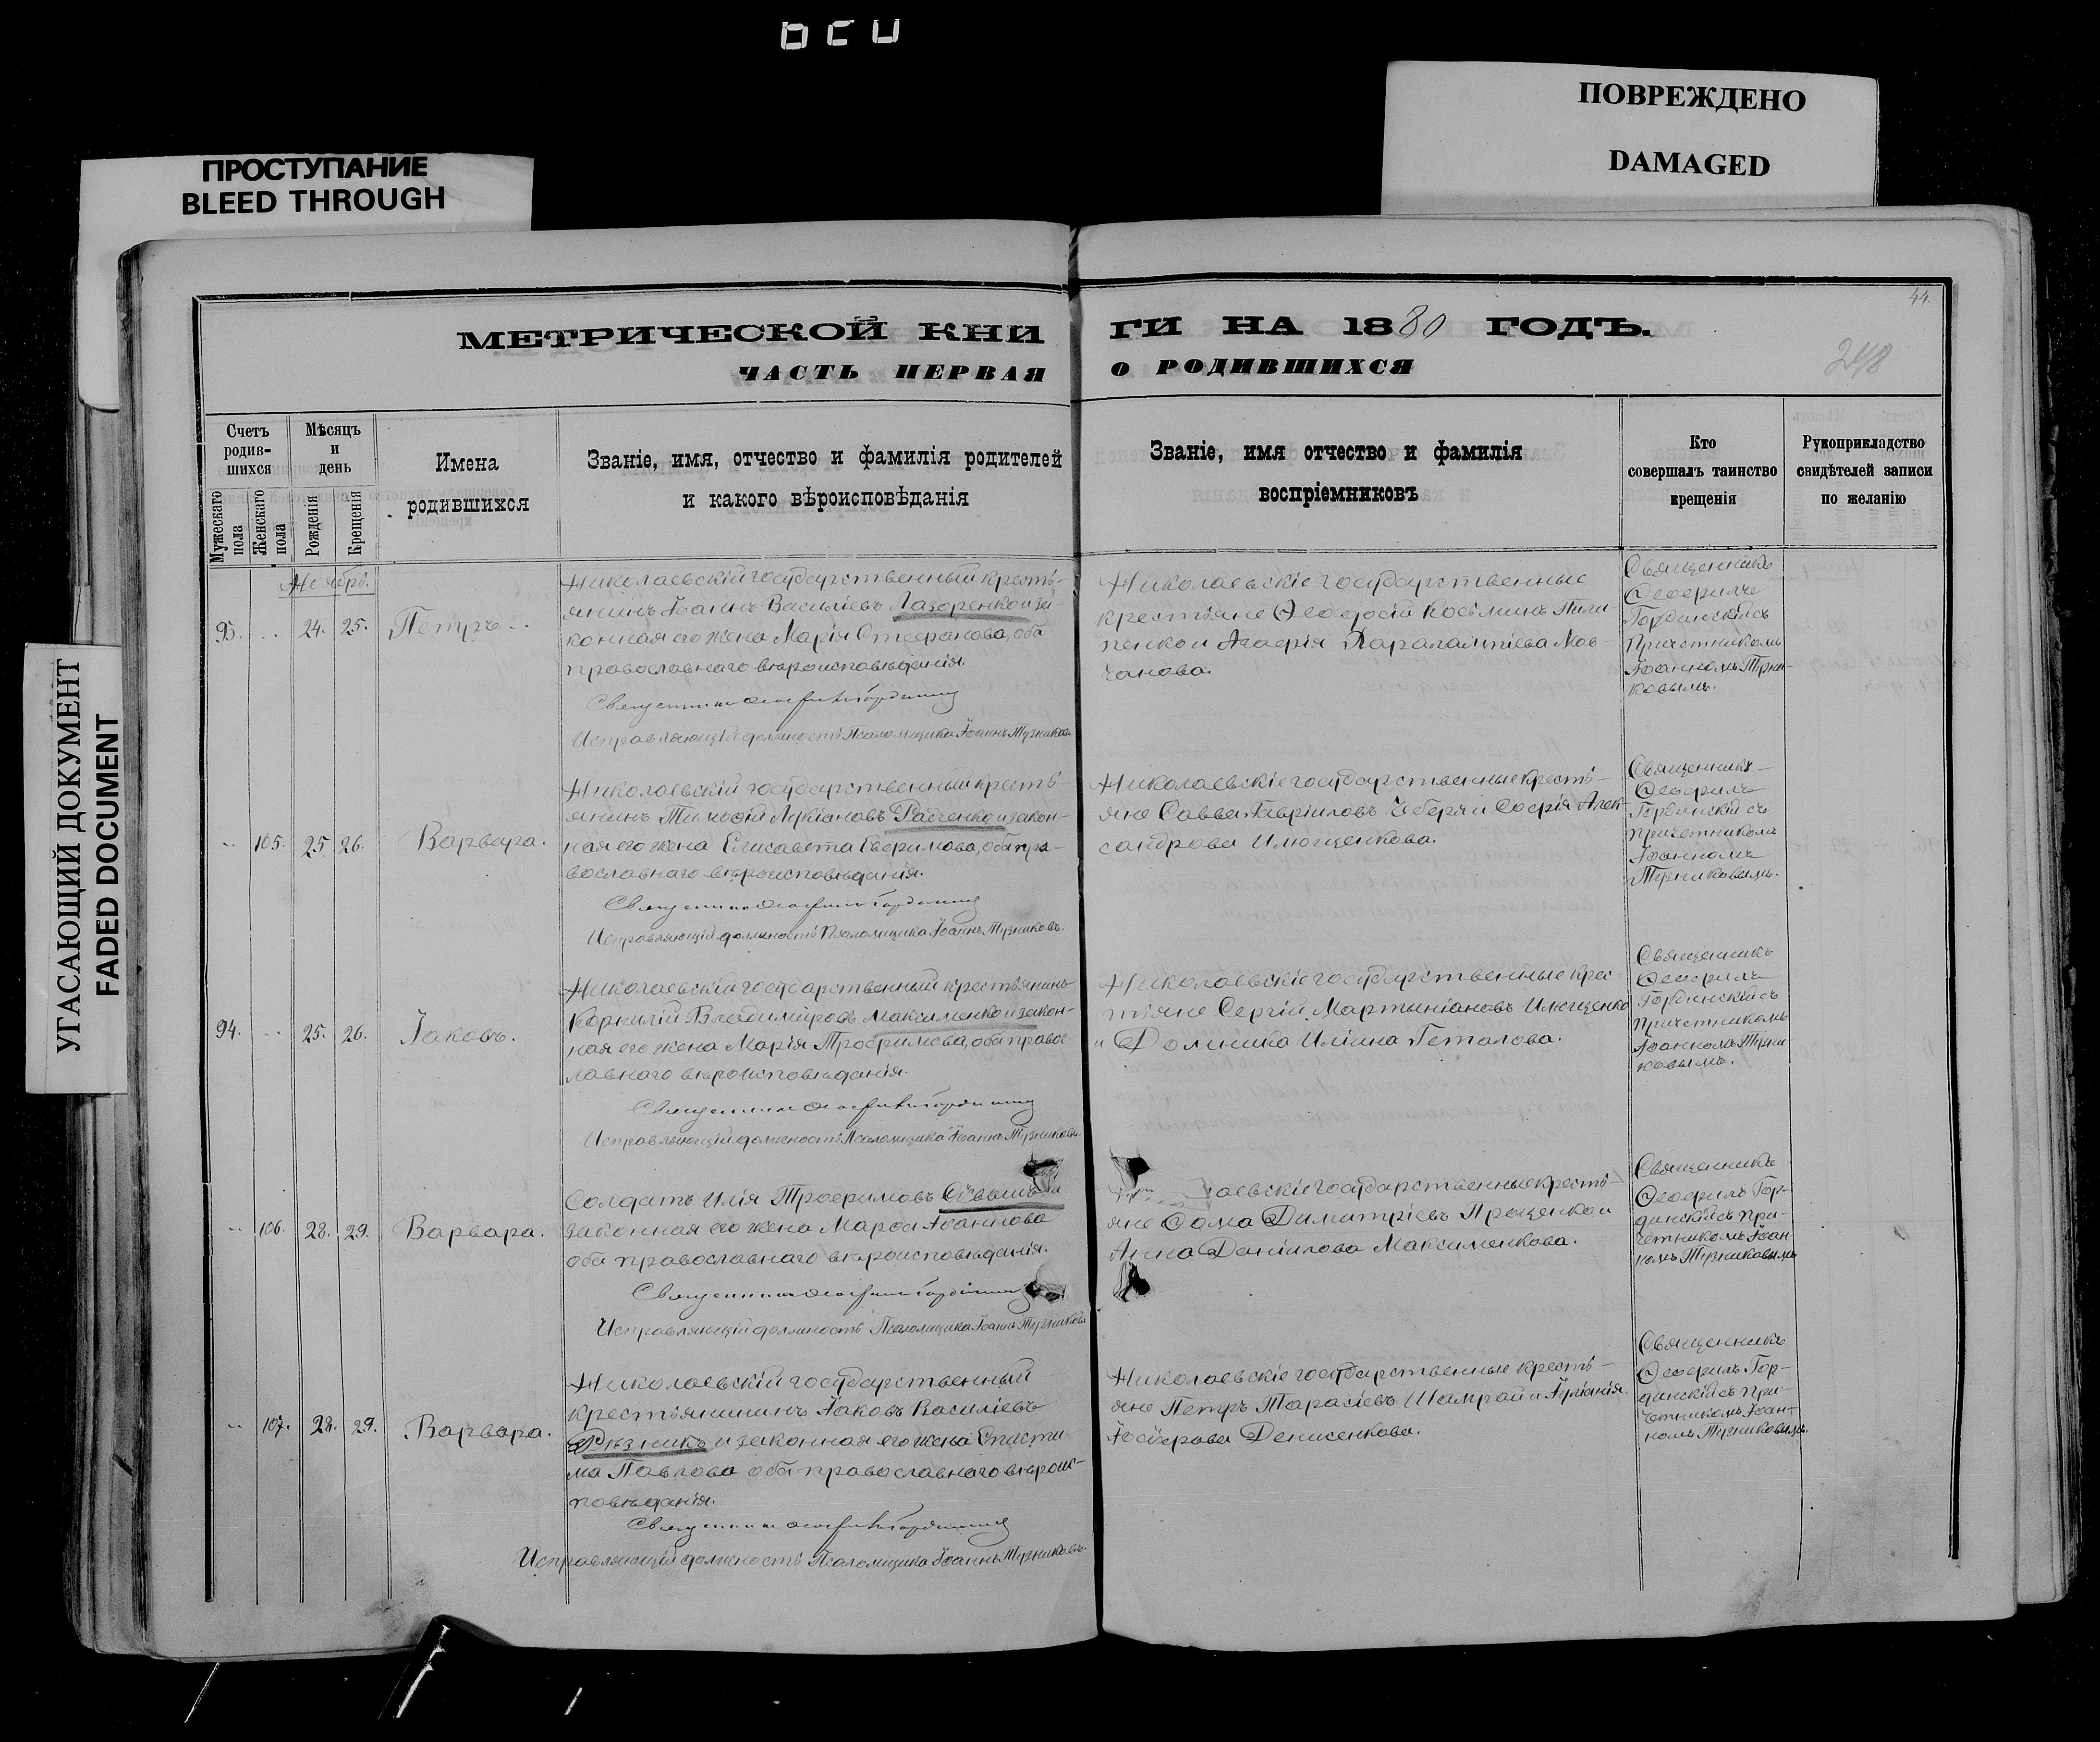 ПОВРЕЖДЕНО
DAMAGED
ПРОСТУПАНИЕ
BLEED THROUGH
УГАСАЮЩИЙ ДОКУМЕНТ
FADED DOCUMENT
44.
МЕТРИЧЕСКОЙ КНИ ГИ НА 1880 ГОДЪ.
ЧАСТЬ ПЕРВАЯ О РОДИВШИХСЯ
248
Счетъ
родив-
шихся
Мужескаго
пола
Женскаго
пола
Мѣсяцъ
и
день
Рожденія
Крещенія
Имена
родившихся
Званіе, имя, отчество и фамилія родителей
и какого вѣроисповѣданія
Званіе, имя отчество и фамилія
воспріемниковъ
Кто
совершалъ таинство
крещенія
Рукоприкладство
свидѣтелей записи
по желанію
Ноябрь.
93. 24. 25. Петръ
Николаевскій государственный кресть-
янинъ Іоаннъ Васильевъ Лазоренко и за-
конная его жена Марія Стефанова, оба
православнаго вѣроисповѣданія.
Исправляющій должность Псаломщика Іоаннъ Тузниковъ
Николаевскіе государственные
крестьяне Ѳеодосій Косьминъ Пили-
пенко и Агафія Харалампіева Мов-
чанова.
Священникъ
Ѳеофилъ
Гординскій съ
Причетникомъ
Іоанномъ Тузни-
ковымъ.
105. 25. 26. Варвара.
Николаевскій государственный кресть-
янинъ Тимофей Лукіановъ Радченко и закон-
ная его жена Елисавета Евфимова, оба пра-
вославнаго вѣроисповѣданія.
Исправляющій должность Псаломщика Іоаннъ Тузниковъ.
Николаевскіе государственные кресть-
яне Савва Гавріиловъ Чеберяч и Софія Алек-
сандрова Илющенкова.
Священникъ
Ѳеофилъ
Гординскій съ
Причетникомъ
Іоанномъ
Тузниковымъ.
94. 25. 26. Іаковъ.
Николаевскій государственный крестьянинъ
Корнилій Владимировъ Максименко и закон-
ная его жена Марія Трофимова, оба правос-
лавнаго вѣроисповѣданія.
Исправляющій должность Псаломщика Іоаннъ Тузниковъ.
Николаевскіе государственные крес-
тьяне Сергій Мартиніановъ Илющенко
и Домника Иліина Геталова.
Священникъ
Ѳеофилъ
Гординскій съ
Причетникомъ
Іоанномъ Тузни-
ковымъ.
106. 28. 29. Варвара.
Солдатъ Илія Трофимовъ и
законная его жена Марфа Іоаннова
оба православнаго вѣроисповѣданія.
Исправляющій должность Псаломщика Іоаннъ Тузниковъ
аевскіе государственные кресть-
яне Ѳома Димитріевъ Проценко и
Анна Даніилова Максименкова.
Священникъ
Ѳеофилъ Гор-
динскій съ При-
четникомъ Іоан-
номъ Тузниковымъ
107. 28. 29. Варвара.
Николаевскій государственный
крестьянинъ Іаковъ Васильевъ
Рѣзникъ и законная его жена Еписти-
ма Павлова оба православнаго вѣроис-
повѣданія.
Исправляющій должность Псаломщика Іоаннъ Тузниковъ.
Николаевскіе государственные кресть-
яне Петръ Тарасіевъ Шамрай и Іуліанія
Іосифова Денисенкова.
Священникъ
Ѳеофилъ Гор-
динскій съ При-
четникомъ Іоан-
номъ Тузниковымъ.